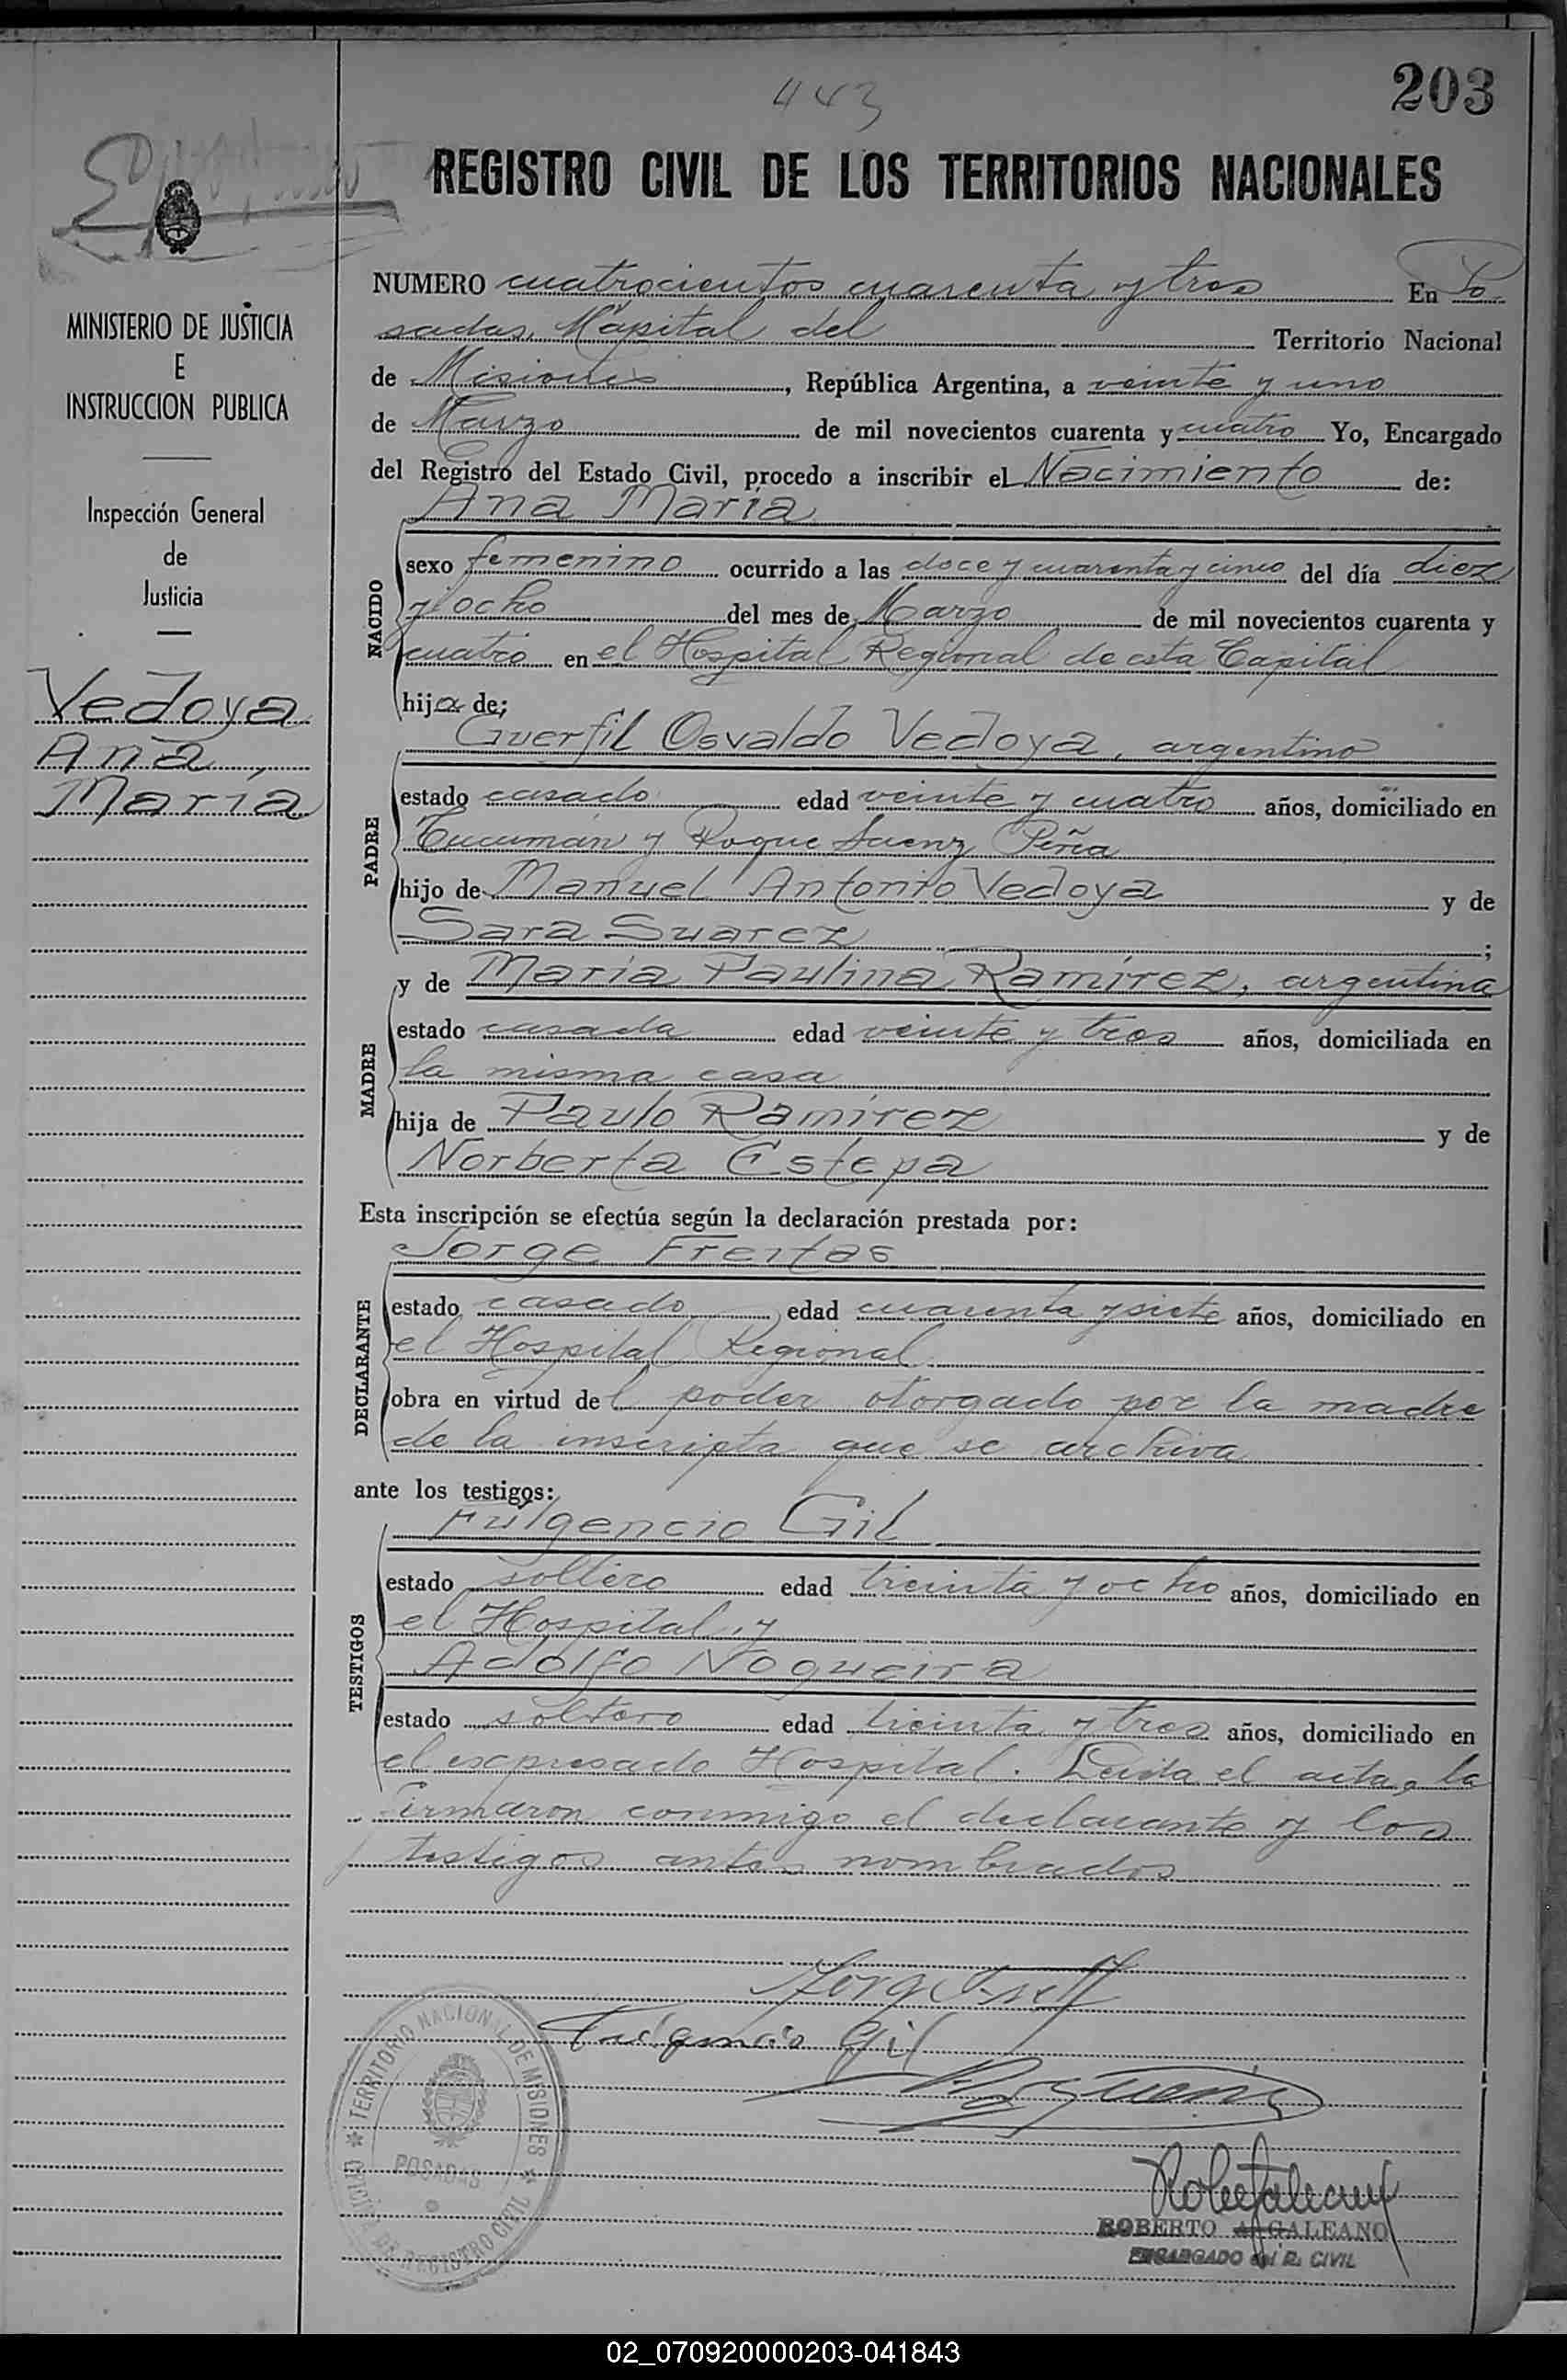 203
443
REGISTRO CIVIL DE LOS TERRITORIOS NACIONALES
MINISTERIO DE JUSTICIA
E
INSTRUCCION PUBLICA
Inspección General
de
Justicia
Vedoya
Ana
María
NUMERO cuatrocientos cuarenta y tres En Po-
sadas, Capital del Territorio Nacional
de Misiones, República Argentina, a veinte y uno
de Marzo de mil novecientos cuarenta y cuatro Yo, Encargado
del Registro del Estado Civil, procedo a inscribir el Nacimiento de:
Ana María
NACIDO
sexo femenino ocurrido a las doce y cuarenta y cinco del día diez
y ocho del mes de Marzo de mil novecientos cuarenta y
cuatro en el Hospital Regional de esta Capital
hija de;
Guerfil Osvaldo Vedoya, argentino
PADRE
estado casado edad veinte y cuatro años, domiciliado en
Tucumán y Roque Saenz Peña
hijo de Manuel Antonio Vedoya y de
Sara Suarez ;
y de María Paulina Ramírez, argentina
MADRE
estado casada edad veinte y tres años, domiciliada en
la misma casa
hija de Paulo Ramírez y de
Norberta Estepa
Esta inscripción se efectúa según la declaración prestada por:
Jorge Freitas
DECLARANTE
estado casado edad cuarenta y siete años, domiciliado en
el Hospital Regional
obra en virtud del poder otorgado por la madre
de la inscripta que se archiva
ante los testigos:
Fulgencio Gil
TESTIGOS
estado soltero edad treinta y ocho años, domiciliado en
el Hospital, y
Adolfo Nogueira
estado soltero edad treinta y tres años, domiciliado en
el expresado Hospital. Leída el acta, la
firmaron conmigo el declarante y los
testigos antes nombrados
Fulgencio Gil
TERRITORIO NACIONAL DE MISIONES
POSADAS
OFICINA DE REGISTRO CIVIL
ROBERTO A. GALEANO
ENCARGADO del R. CIVIL
02_070920000203-041843